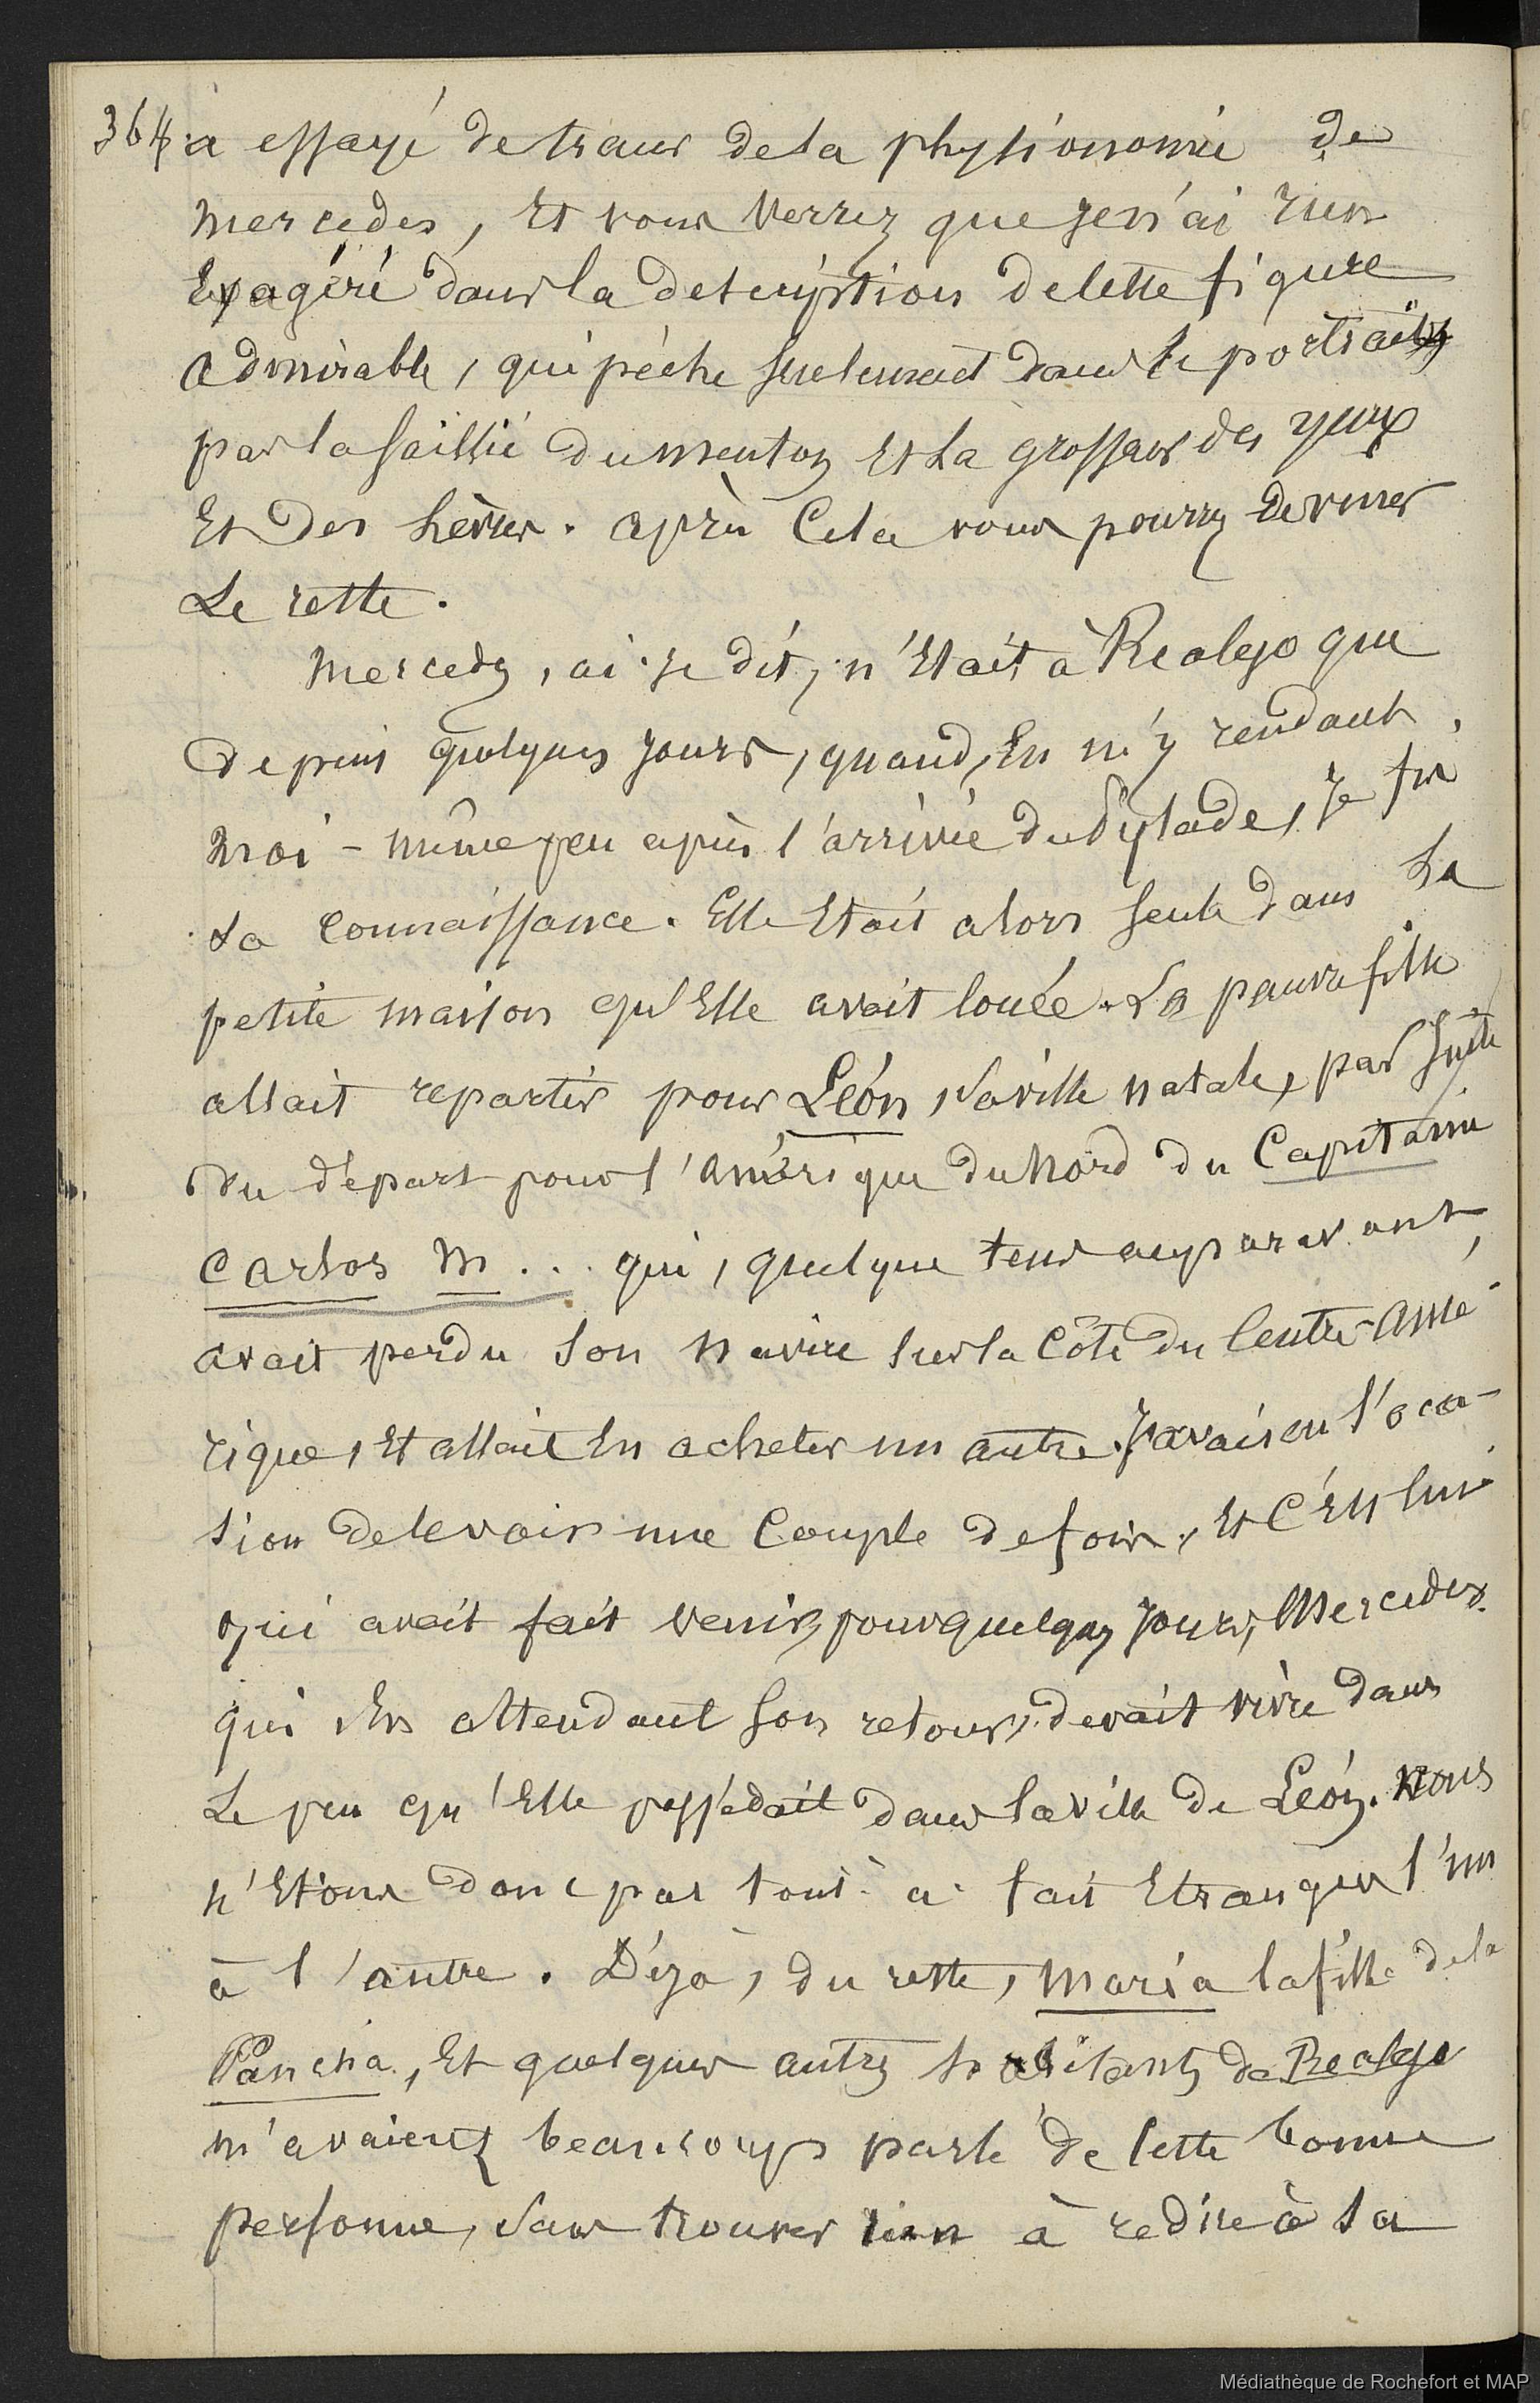 364. a essayé de tracer de la physionomie de
Mercedes, et vous verrez que je n'ai rien
Exagéré dans la description de cette figure
admirable, qui pèche seulement dans le portrait
par la saillie du menton et la grosseur des yeux
Et des Lèvres. après Cela vous pourrez deviner
Le reste.
Mercedes, ai-je dit, n'Etait à Realejo que
depuis quelques jours, quand, En m'y rendant
moi-même peu après l'arrivée du Pylade, je fis
sa connaissance. Elle Etait alors seule dans la
petite maison qu'Elle avait louée. La pauvre fille
allait repartir pour León, sa ville natale, par suite
du départ pour l'Amérique du Nord du Capitaine
Carlos M... qui, quelque tems auparavant,
avait perdu son navire sur la Côte du Centre-Amé-
rique, Et allait En acheter un autre. J'avais eu l'occa-
sion de le voir une Couple de fois, Et C'Est lui
qui avait fait venir, pour quelques jours, Mercedes
qui, En attendant son retour, devait vivre dans
Le peu qu'Elle possédait dans la ville de León. Nous
n'Etions donc pas tout-à-fait Etrangers l'un
à l'autre. Déjà, du reste, Maria la fille de la
Pancha, Et quelques autres habitants de Realejo
m'avaient beaucoup parlé de cette bonne
personne, sans trouver rien à redire à sa
Médiathèque de Rochefort et MAP